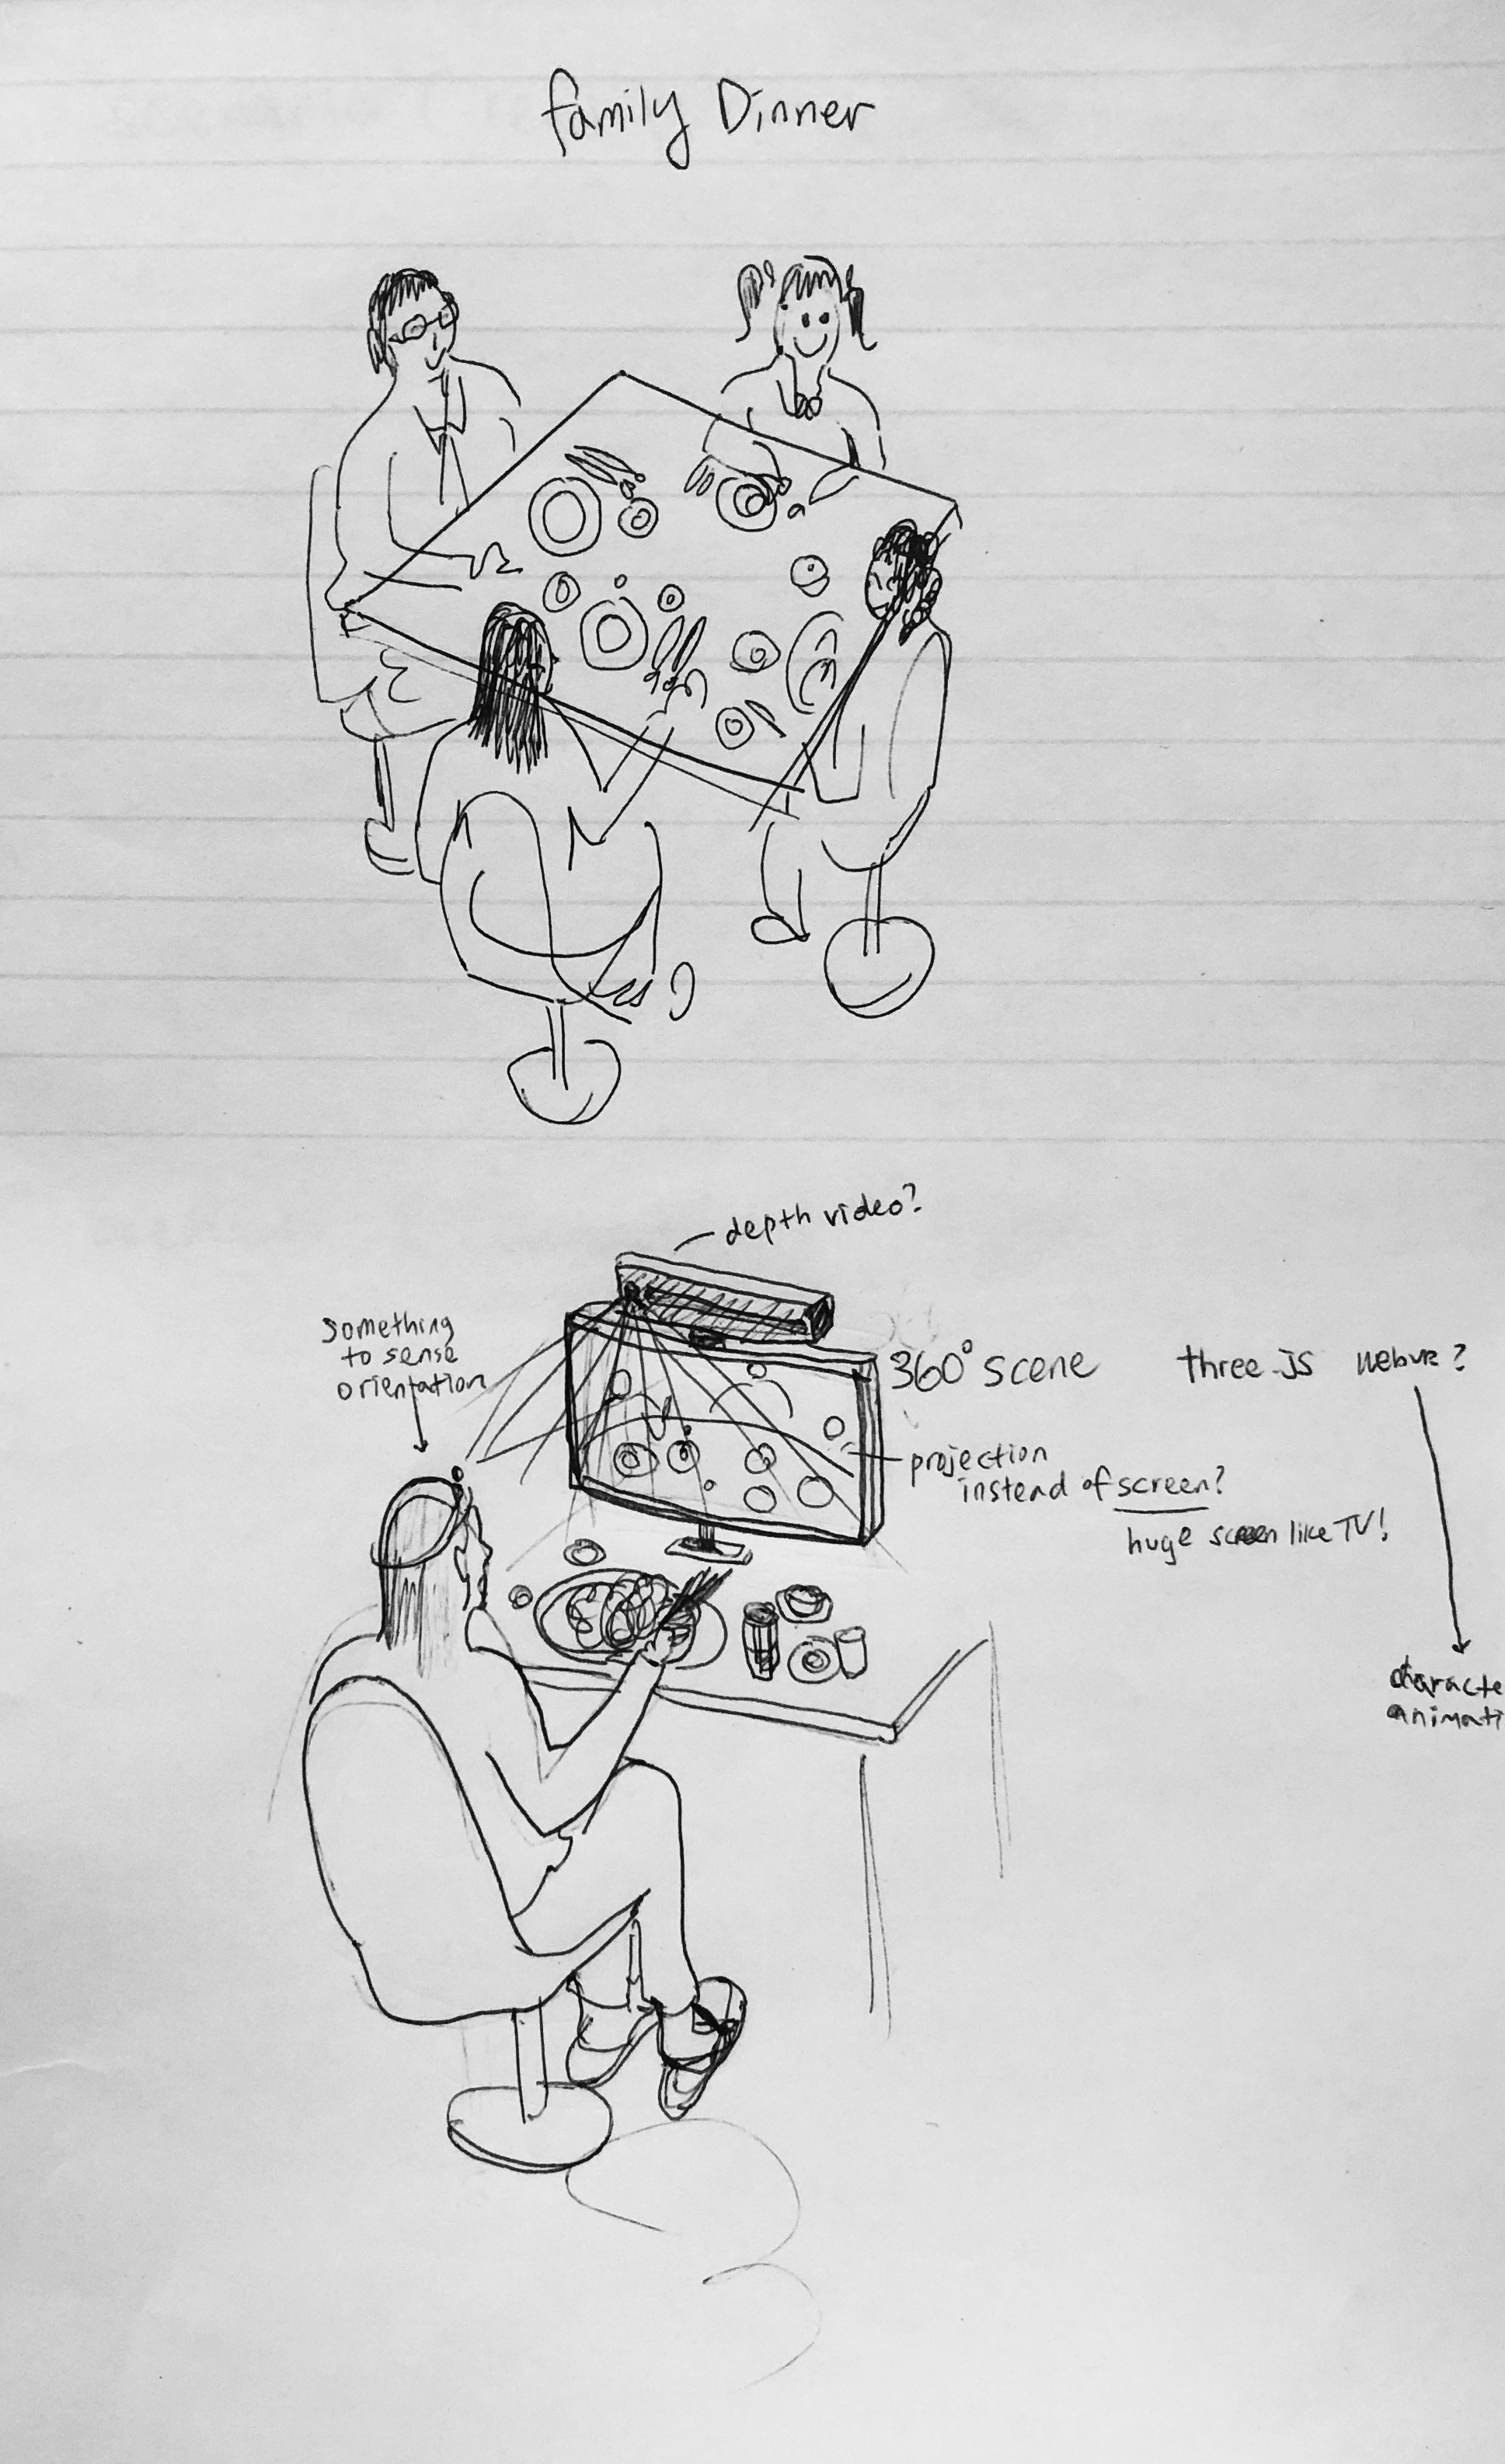 family Dinner
depth video?
something
to sense
orientation
360° scene three.js webVR?
projection
instead of screen?
huge screen like TV!
characte
animati